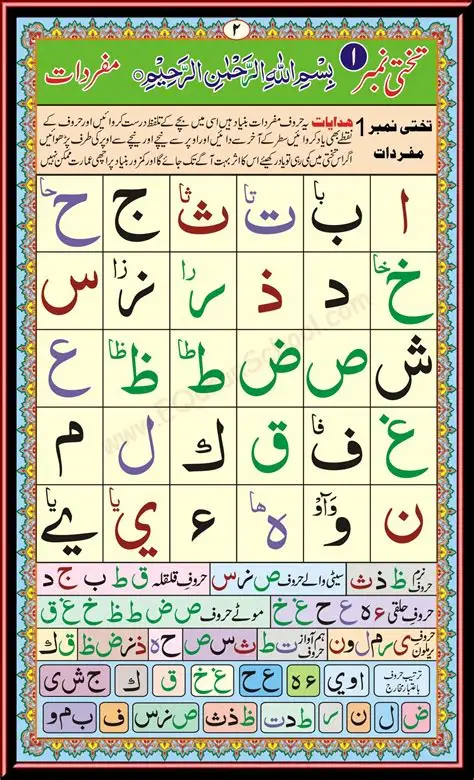 ۲
تختی نمبر ۱ بِسْمِ اللّٰهِ الرَّحْمٰنِ الرَّحِيْمِ مفردات
تختی نمبر 1 مفردات
ہدایات یہ حروف مفردات بنیاد ہیں اسی میں بچے کے تلفظ درست کروائیں اور حروف کے
نقطے بھی یاد کروائیں سطر کے آخر سے دائیں اور اوپر سے نیچے اور نیچے سے اوپر کی طرف پڑھوائیں
اگر اس تختی میں کمی رہی تو یاد رکھیئے اس کا اثر بہت آگے تک جائے گا اور کمزور بنیاد پر اچھی عمارت ممکن نہیں
ا ب با ت تا ث ثا ج ح حا
خ خا د ذ ر را ز زا س
ش ص ض ط طا ظ ظا ع
غ ف فا ق ك ل م
ن و وَاوْ ه ها ء ي يا ے يا
www.EQuranSchool.com
نرم حروف ظ ذ ث سیٹی والے حروف ص ز س حروف قلقلہ ق ط ب ج د
حروف حلقی ء ه ع ح غ خ موٹے حروف ص ض ط ظ خ غ ق
حروف یرملون ی ر م ل و ن ہم آواز حروف ت ط ث س ص ح ه ذ ز ض ظ ق ك
ترتیب حروف باعتبار مخارج ا و ي ء ه ع ح غ خ ق ك ج ش ی
ض ل ن ر ط د ت ظ ذ ث ص ز س ف ب م و